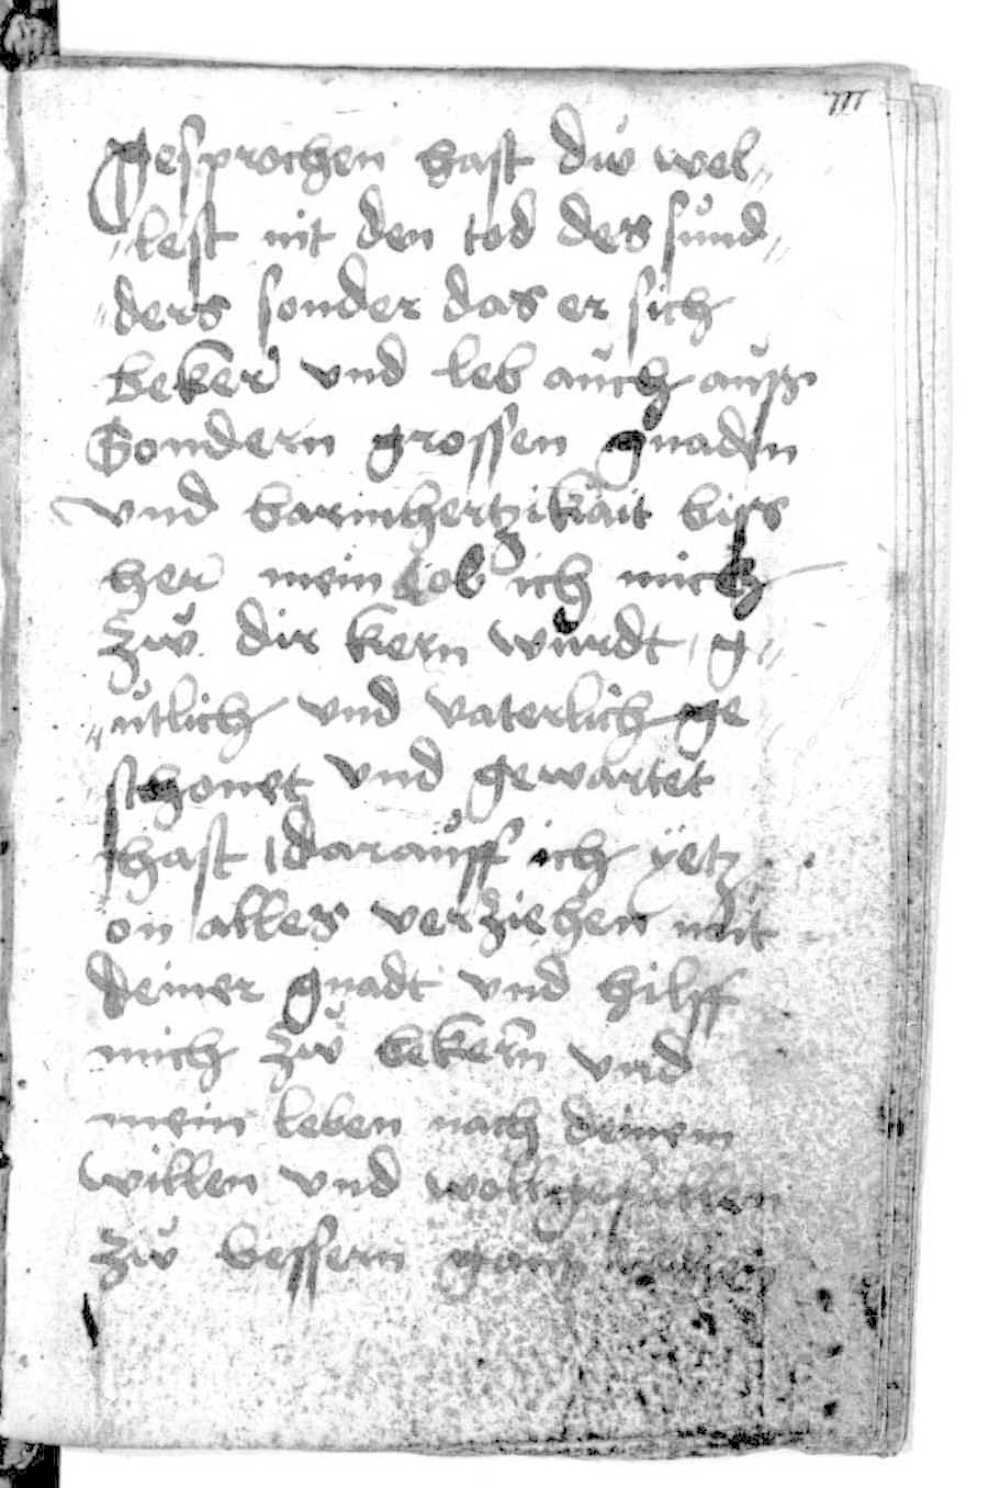 III
gesprochen hast dů wel„
„lest nit den tod des sůnd„
„ders sonder das er sich
beker und leb aůch aůß
Sondern grossen gnaden
vnd barmhertzikait biss
her mein ob ich mich
Zů dir kern wůrdt g„
„ůtlich vnd vaterlich ge
schonet vnd gewartet
hast darauff ich yetz
on alles verziehen mit
deiner gnadt vnd hilff
mich zů bekern vnd
mein leben nach deinem
willen vnd wollgefallen
zů bessern gantz